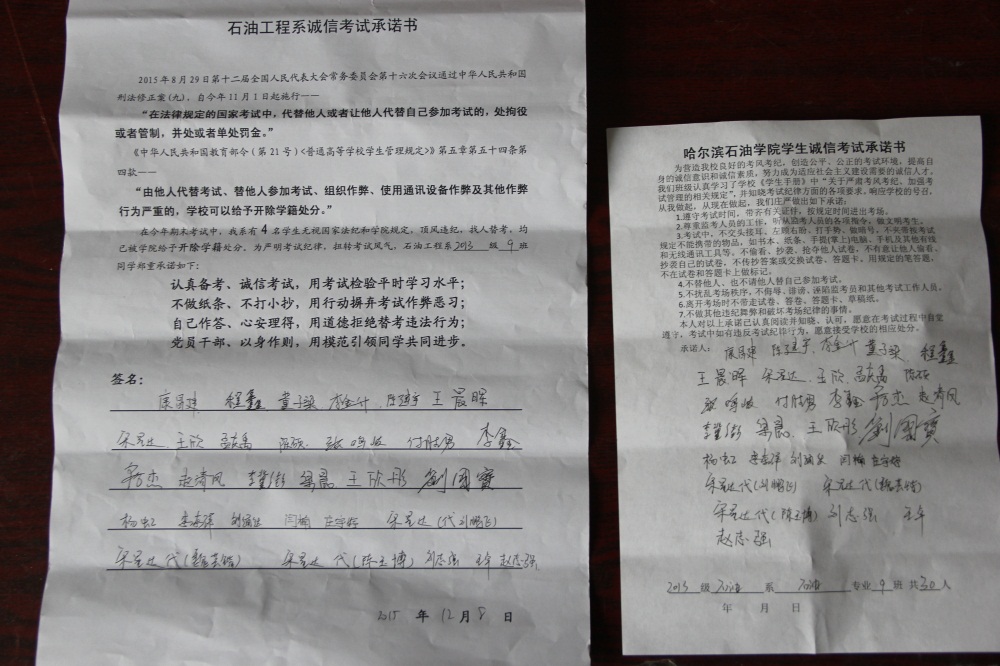 石油工程系诚信考试承诺书
2015年8月29日第十二届全国人民代表大会常务委员会第十六次会议通过中华人民共和国
刑法修正案(九)，自今年11月1日起施行——
“在法律规定的国家考试中，代替他人或者让他人代替自己参加考试的，处拘役
或者管制，并处或者单处罚金。”
《中华人民共和国教育部令(第21号)<普通高等学校学生管理规定>》第五章第五十四条第
四款——
“由他人代替考试、替他人参加考试、组织作弊、使用通讯设备作弊及其他作弊
行为严重的，学校可以给予开除学籍处分。”
在今年期末考试中，我系有4名学生无视国家法纪和学院规定，顶风违纪，找人替考，均
已被学院给予开除学籍处分。为严明考试纪律，扭转考试风气，石油工程系2013级9班
同学郑重承诺如下：
认真备考、诚信考试，用考试检验平时学习水平；
不做纸条、不打小抄，用行动摒弃考试作弊恶习；
自己作答、心安理得，用道德拒绝替考违法行为；
党员干部、以身作则，用模范引领同学共同进步。
签名：
程鑫 董子梁 王晨晖
宋星达 王欣 张鸣 付胜男 李鑫
乔杰 走青风 梁晨 王欣彤 劉國寶
杨虹 闫楠 宋星达(代刘鹏飞)
宋星达代 宋星达代(陈玉博) 刘志强 王年 赵志强
2015年12月8日
哈尔滨石油学院学生诚信考试承诺书
为营造我校良好的考风考纪，创造公平、公正的考试环境，提高自
身的诚信意识和诚信素质，努力成为适应社会主义建设需要的诚信人才，
我们班级认真学习了学校《学生手册》中“关于严肃考风考纪、加强考
试管理的相关规定”，并知晓考试纪律方面的各项要求，响应学校的号召，
从我做起，从现在做起，我们庄严做出如下承诺：
1.遵守考试时间，带齐有关证件，按规定时间进出考场。
2.尊重监考人员的工作，听从监考人员的各项指令，做文明考生。
3.考试中，不交头接耳、左顾右盼、打手势、做暗号，不夹带假考试
规定不能携带的物品，如书本、纸条、手提(掌上)电脑、手机及其他有线
和无线通讯工具等。不偷看、抄袭、抢夺他人试卷，不有意让他人偷看、
抄袭自己的试卷，不传抄答案或交换试卷、答题卡，用规定的笔答题，
不在试卷和答题卡上做标记。
4.不替他人、也不请他人替自己参加考试。
5.不扰乱考场秩序，不侮辱、诽谤、诬陷监考员和其他考试工作人员。
6.离开考场时不带走试卷、答卷、答题卡、草稿纸。
7.不做其他违纪舞弊和破坏考场纪律的事情。
本人对以上承诺已认真阅读并知晓、认可，愿意在考试过程中自觉
遵守，考试中如有违反考试纪律行为，愿意接受学校的相应处分。
承诺人： 董子梁 程鑫
王晨晖 宋星达 王欣
张鸣 付胜男 李鑫 乔杰 走青风
梁晨 王欣彤 劉國寶
杨虹 闫楠
宋星达代(刘鹏飞) 宋星达代
宋星达代(陈玉博) 刘志强 王年
赵志强
2013级石油系石油专业9班共30人
年 月 日